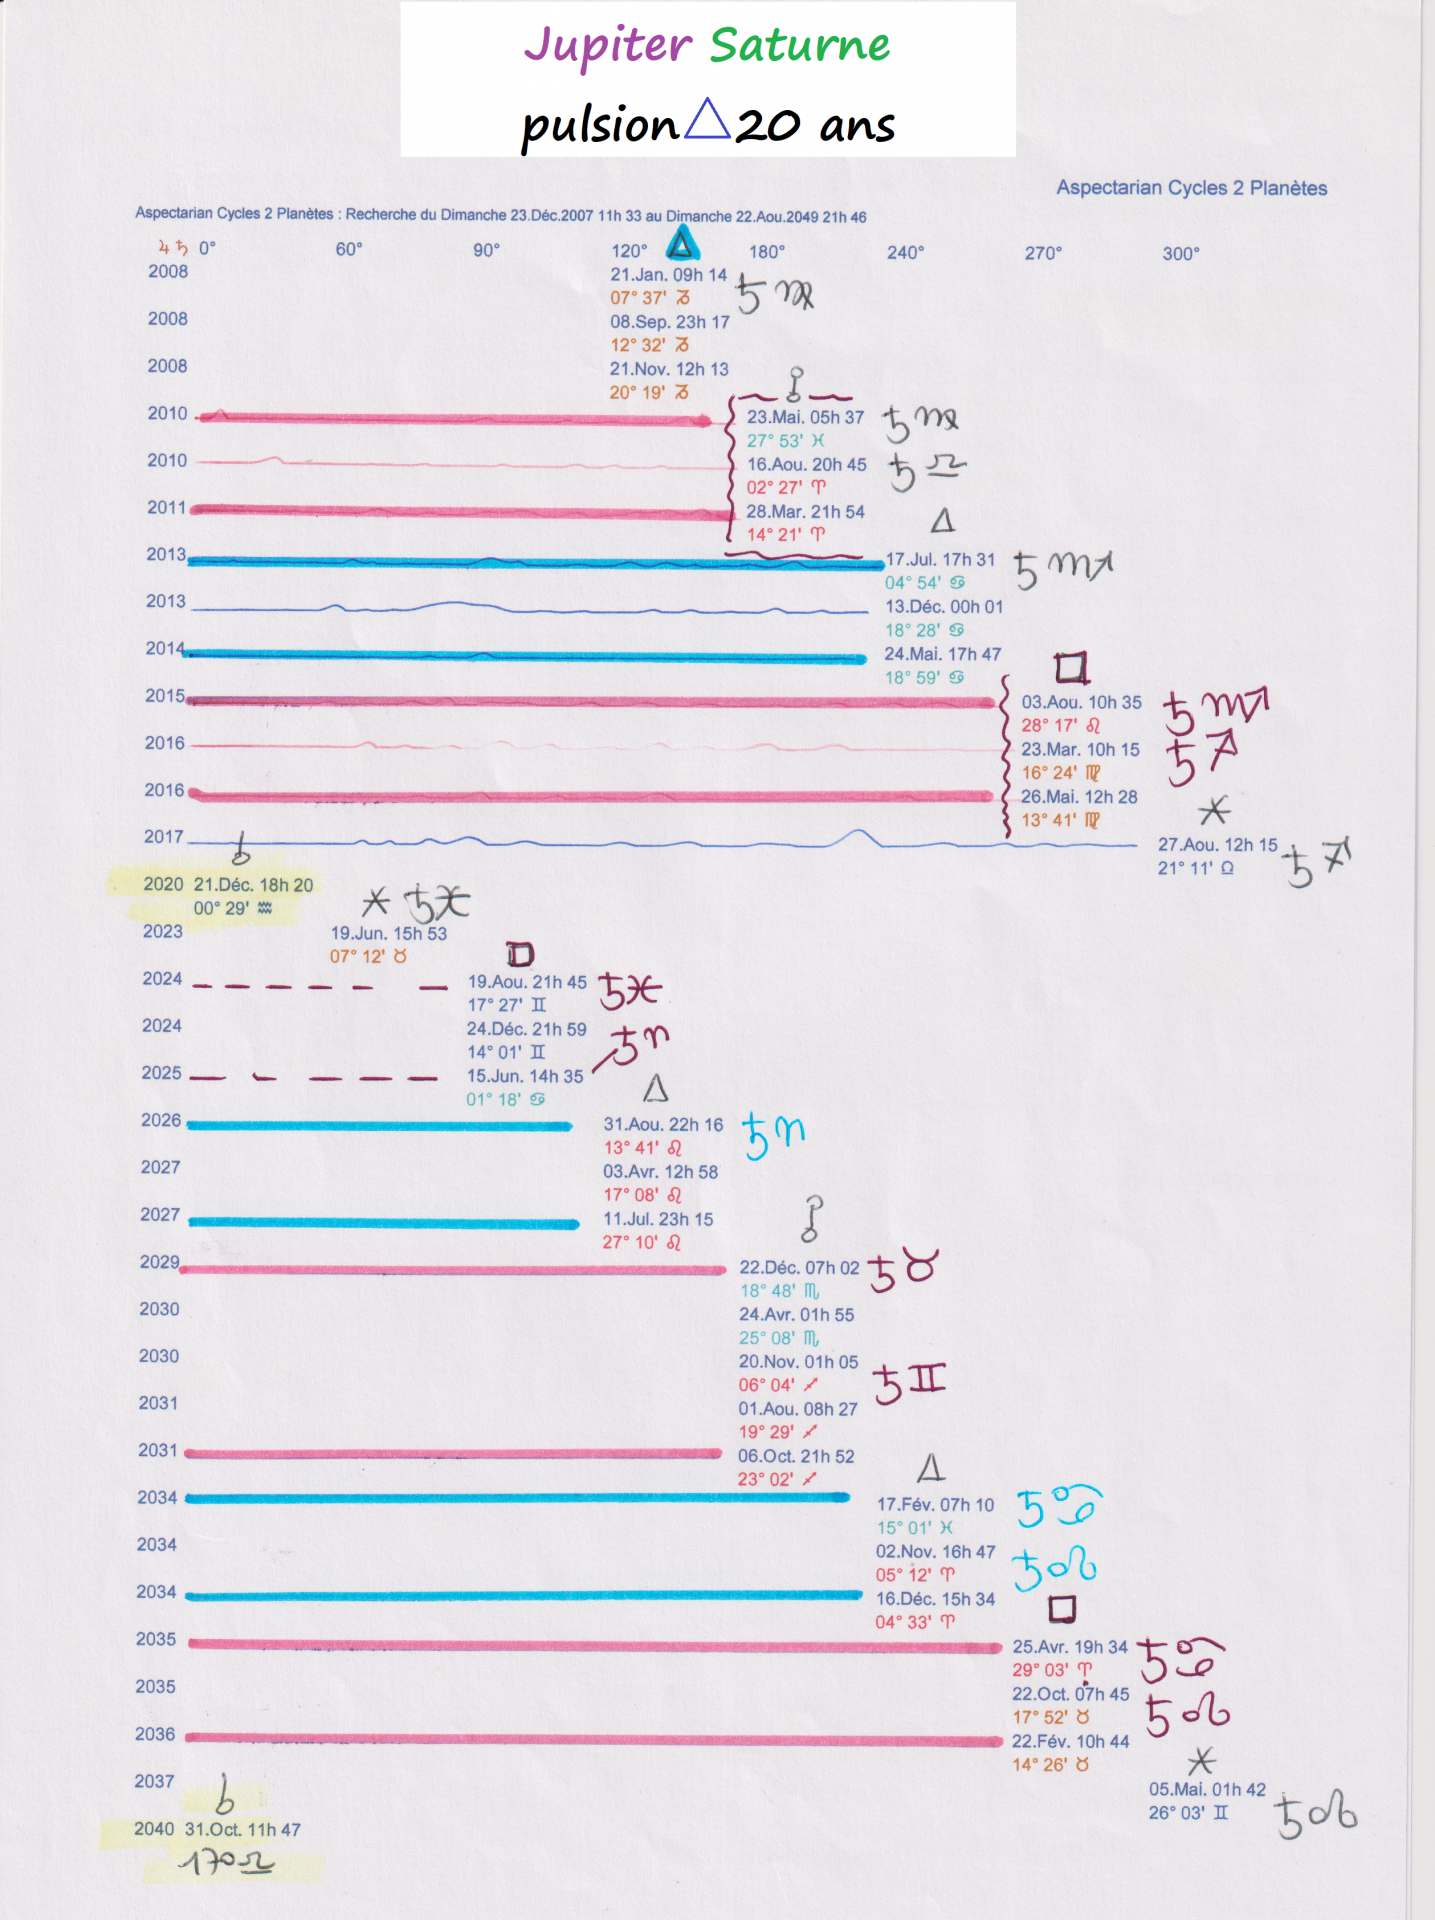 Jupiter Saturne
pulsion △ 20 ans
Aspectarian Cycles 2 Planètes
Aspectarian Cycles 2 Planètes : Recherche du Dimanche 23.Déc.2007 11h 33 au Dimanche 22.Aou.2049 21h 46
♃ ♄ 0° 60° 90° 120° △ 180° 240° 270° 300°
2008 21.Jan. 09h 14 ♄ ♍
07° 37' ♑
2008 08.Sep. 23h 17
12° 32' ♑
2008 21.Nov. 12h 13
20° 19' ♑
☍
2010 23.Mai. 05h 37 ♄ ♍
27° 53' ♓
2010 16.Aou. 20h 45 ♄ ♎
02° 27' ♈
2011 28.Mar. 21h 54 △
14° 21' ♈
2013 17.Jul. 17h 31 ♄ ♏
04° 54' ♋
2013 13.Déc. 00h 01
18° 28' ♋
2014 24.Mai. 17h 47 □
18° 59' ♋
2015 03.Aou. 10h 35 ♄ ♏
28° 17' ♌
2016 23.Mar. 10h 15 ♄ ♐
16° 24' ♍
2016 26.Mai. 12h 28
13° 41' ♍ ⚹
2017 27.Aou. 12h 15 ♄ ♐
21° 11' ♎
☌
2020 21.Déc. 18h 20
00° 29' ♒ ⚹ ♄ ♓
2023 19.Jun. 15h 53
07° 12' ♉ □
2024 19.Aou. 21h 45 ♄ ♓
17° 27' ♊
2024 24.Déc. 21h 59 ♄ ♈
14° 01' ♊
2025 15.Jun. 14h 35 △
01° 18' ♋
2026 31.Aou. 22h 16 ♄ ♈
13° 41' ♌
2027 03.Avr. 12h 58
17° 08' ♌
2027 11.Jul. 23h 15 ☍
27° 10' ♌
2029 22.Déc. 07h 02 ♄ ♉
18° 48' ♏
2030 24.Avr. 01h 55
25° 08' ♏
2030 20.Nov. 01h 05
06° 04' ♐ ♄ ♊
2031 01.Aou. 08h 27
19° 29' ♐
2031 06.Oct. 21h 52 △
23° 02' ♐
2034 17.Fév. 07h 10 ♄ ♋
15° 01' ♓
2034 02.Nov. 16h 47 ♄ ♌
05° 12' ♈
2034 16.Déc. 15h 34 □
04° 33' ♈
2035 25.Avr. 19h 34 ♄ ♋
29° 03' ♈
2035 22.Oct. 07h 45 ♄ ♌
17° 52' ♉
2036 22.Fév. 10h 44
14° 26' ♉ ⚹
2037 05.Mai. 01h 42
☌ 26° 03' ♊ ♄ ♌
2040 31.Oct. 11h 47
17° ♎